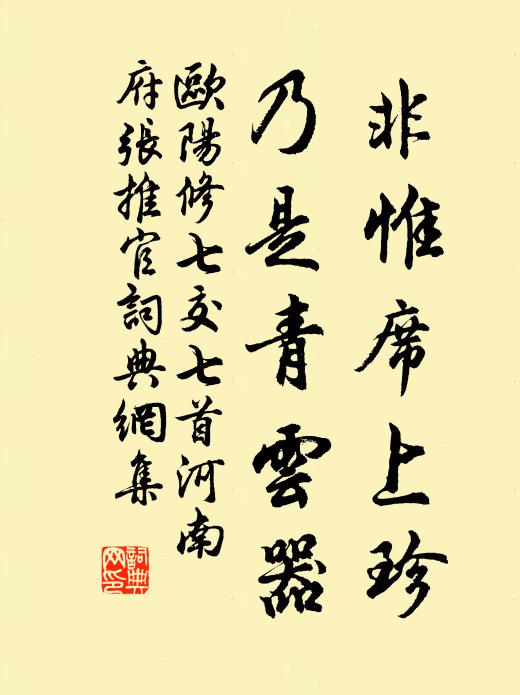 非惟席上珍
乃是青雲器
歐陽修七交七首河南
府張推官詞典網集
詞典網印